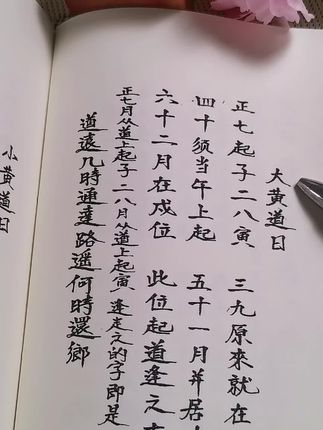 大黄道日
正七起子二八寅 三九原來就在
四十须当午上起 五十一月并居
六十二月在戌位 此位起道逢之
正七月从道上起子 二八月从道上起寅 逢走之的字即是
道遠几時通達 路遥何時還鄉
小黄道日